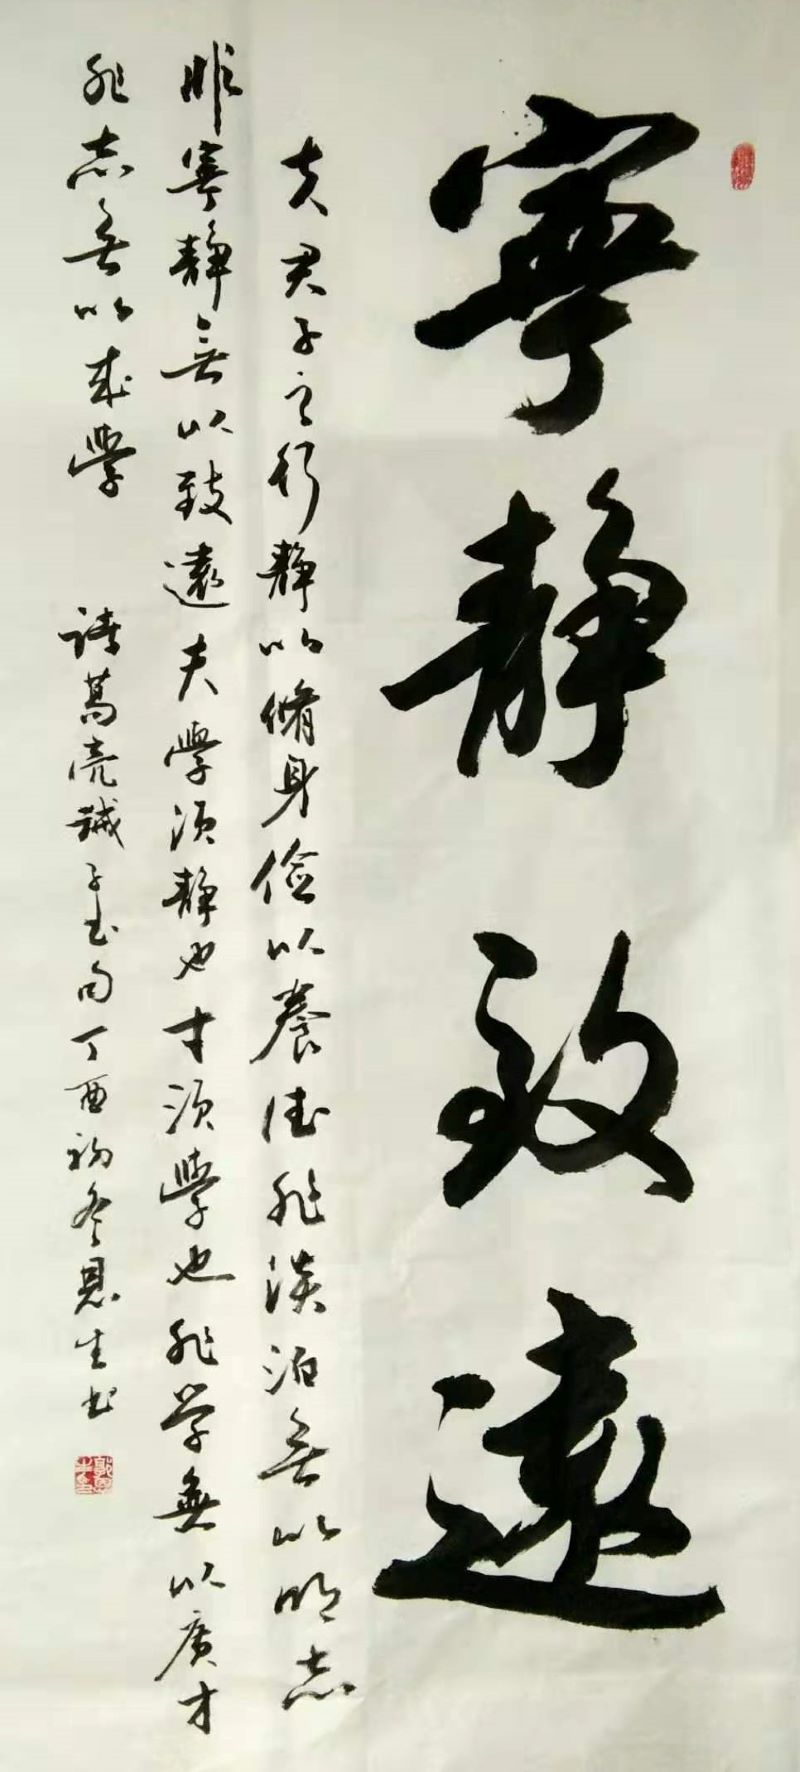 寧靜致遠
夫君子之行靜以脩身儉以養德非淡泊無以明志
非寧靜無以致遠夫學須靜也才須學也非学無以廣才
非志無以成學 諸葛亮誡子書句丁酉初冬恩生书